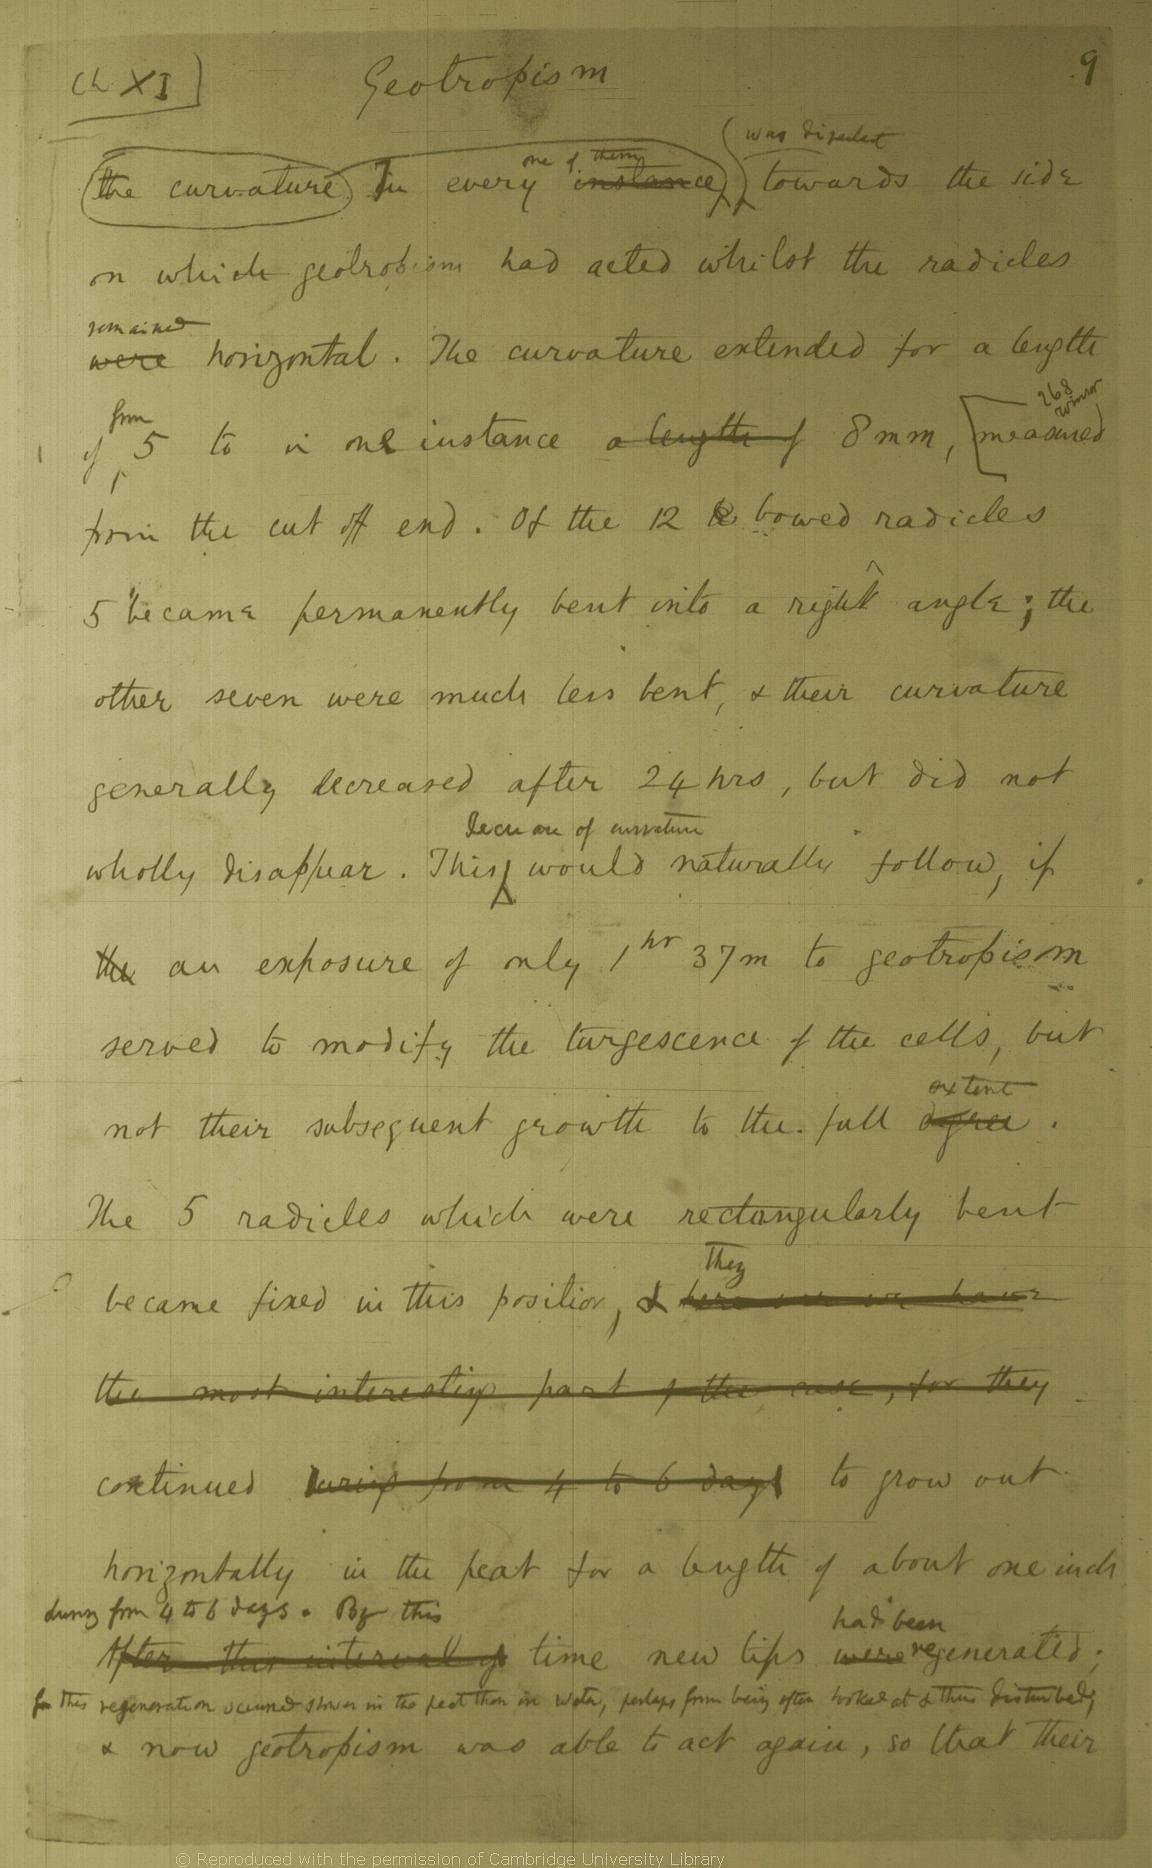 Ch XI] Geotropism 9
one of them was directed
the curvature In every instance towards the side
on which geotropism had acted whilst the radicles
remained
were horizontal. The curvature extended for a length
from 268
of 5 to in one instance a length of 8mm, [measured
from the cut off end. Of the 12 bowed radicles
5 became permanently bent into a right angle; the
other seven were much less bent, & their curvature
generally decreased after 24 hrs, but did not
Decrease of curvature
wholly disappear. This would naturally follow, if
the an exposure of only 1 hr 37m to geotropism
served to modify the turgescence of the cells, but
extent
not their subsequent growth to the full degree.
The 5 radicles which were rectangularly bent
they
became fixed in this position, & here we have
the most interesting part of the case, for they
continued during from 4 to 6 days to grow out
horizontally in the peat for a length of about one inch
during from 4 to 6 days. By this had been
After this interval of time new tips were regenerated;
for this regeneration occurred slower in the peat than in water, perhaps from being often looked at & thus disturbed;
& now geotropism was able to act again, so that their
© Reproduced with the permission of Cambridge University Library